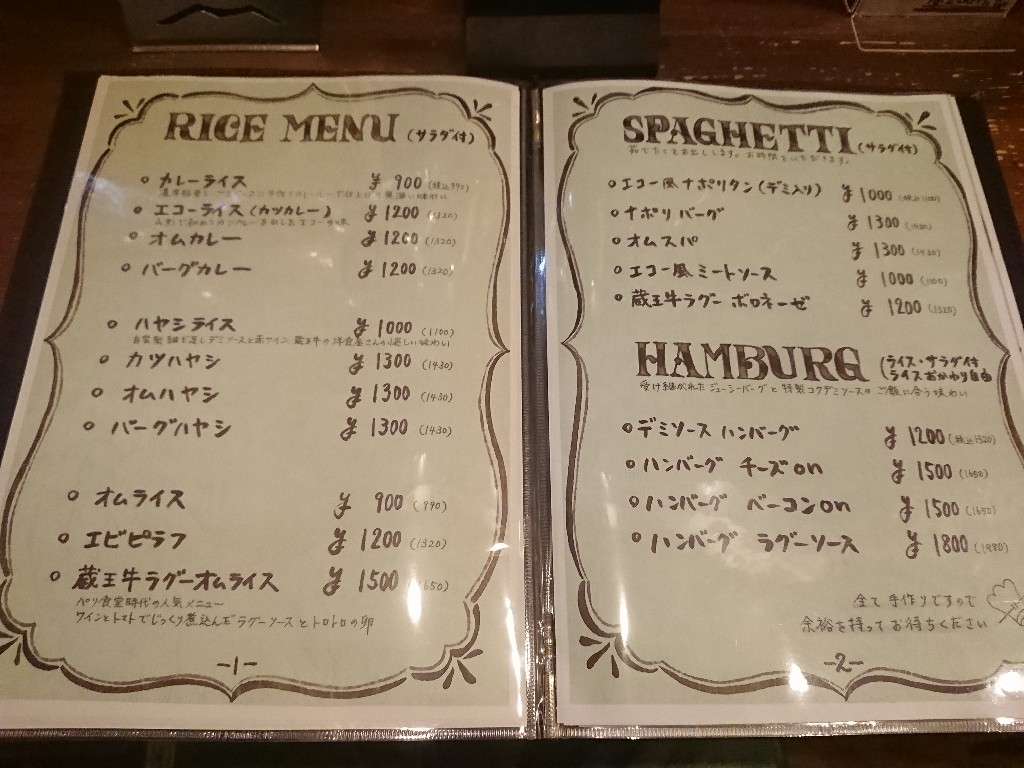 RICE MENU (サラダ付)
カレーライス ¥900(税込990)
エコーライス(カツカレー) ¥1200(1320)
オムカレー ¥1200(1320)
バーグカレー ¥1200(1320)
ハヤシライス ¥1000(1100)
カツハヤシ ¥1300(1430)
オムハヤシ ¥1300(1430)
バーグハヤシ ¥1300(1430)
オムライス ¥900(990)
エビピラフ ¥1200(1320)
蔵王牛ラグーオムライス ¥1500(1650)
パリ食堂時代の人気メニュー
ワインとトマトでじっくり煮込んだラグーソースとトロトロの卵
-1-
SPAGHETTI(サラダ付)
茹でたてをお出しします。お時間をいただきます。
エコー風ナポリタン(デミ入り) ¥1000(税込1100)
ナポリバーグ ¥1300(1430)
オムスパ ¥1300(1430)
エコー風ミートソース ¥1000(1100)
蔵王牛ラグーボロネーゼ ¥1200(1320)
HAMBURG (ライス・サラダ付 ライスおかわり自由
受け継がれたジューシーバーグと特製コクデミソースの ご飯に合う味わい
デミソースハンバーグ ¥1200(税込1320)
ハンバーグ チーズon ¥1500(1650)
ハンバーグ ベーコンon ¥1500(1650)
ハンバーグ ラグーソース ¥1800(1980)
全て手作りですので
余裕を持ってお待ちください
-2-